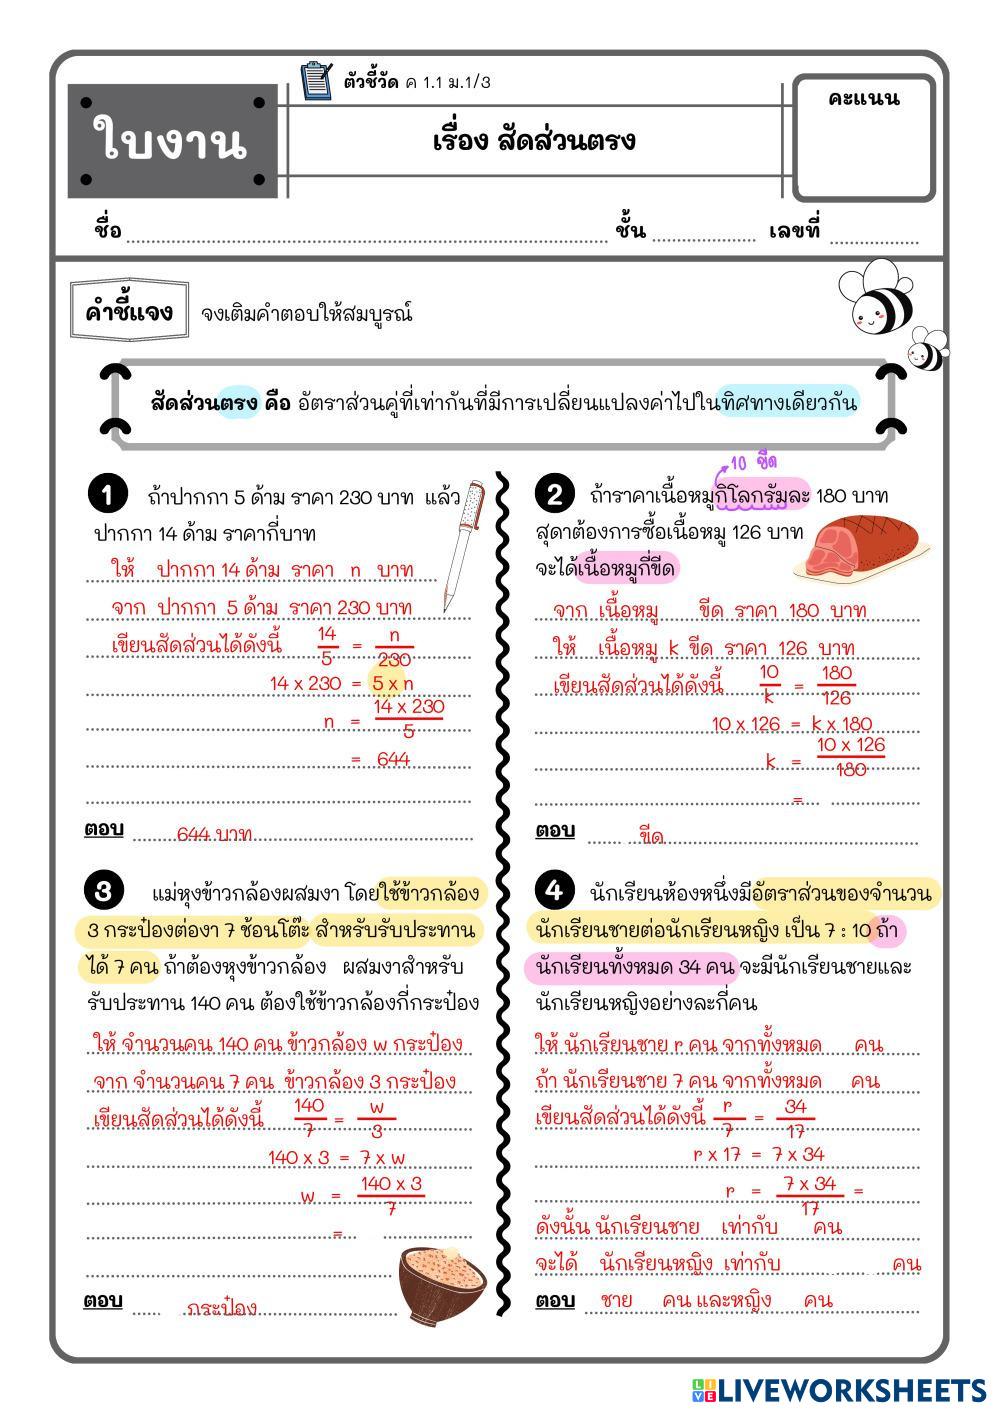 ตัวชี้วัด ค 1.1 ม.1/3
ใบงาน
เรื่อง สัดส่วนตรง
คะแนน
ชื่อ ชั้น เลขที่
คำชี้แจง จงเติมคำตอบให้สมบูรณ์
สัดส่วนตรง คือ อัตราส่วนคู่ที่เท่ากันที่มีการเปลี่ยนแปลงค่าไปในทิศทางเดียวกัน
1 ถ้าปากกา 5 ด้าม ราคา 230 บาท แล้ว
ปากกา 14 ด้าม ราคากี่บาท
ให้ ปากกา 14 ด้าม ราคา n บาท
จาก ปากกา 5 ด้าม ราคา 230 บาท
เขียนสัดส่วนได้ดังนี้ 14/5 = n/230
14 x 230 = 5 x n
n = 14 x 230/5
= 644
ตอบ 644 บาท
10 ขีด
2 ถ้าราคาเนื้อหมูกิโลกรัมละ 180 บาท
สุดาต้องการซื้อเนื้อหมู 126 บาท
จะได้เนื้อหมูกี่ขีด
จาก เนื้อหมู ขีด ราคา 180 บาท
ให้ เนื้อหมู k ขีด ราคา 126 บาท
เขียนสัดส่วนได้ดังนี้ 10/k = 180/126
10 x 126 = k x 180
k = 10 x 126/180
=
ตอบ ขีด
3 แม่หุงข้าวกล้องผสมงา โดยใช้ข้าวกล้อง
3 กระป๋องต่องา 7 ช้อนโต๊ะ สำหรับรับประทาน
ได้ 7 คน ถ้าต้องหุงข้าวกล้อง ผสมงาสำหรับ
รับประทาน 140 คน ต้องใช้ข้าวกล้องกี่กระป๋อง
ให้ จำนวนคน 140 คน ข้าวกล้อง w กระป๋อง
จาก จำนวนคน 7 คน ข้าวกล้อง 3 กระป๋อง
เขียนสัดส่วนได้ดังนี้ 140/7 = w/3
140 x 3 = 7 x w
w = 140 x 3/7
=
ตอบ กระป๋อง
4 นักเรียนห้องหนึ่งมีอัตราส่วนของจำนวน
นักเรียนชายต่อนักเรียนหญิง เป็น 7 : 10 ถ้า
นักเรียนทั้งหมด 34 คน จะมีนักเรียนชายและ
นักเรียนหญิงอย่างละกี่คน
ให้ นักเรียนชาย r คน จากทั้งหมด คน
ถ้า นักเรียนชาย 7 คน จากทั้งหมด คน
เขียนสัดส่วนได้ดังนี้ r/7 = 34/17
r x 17 = 7 x 34
r = 7 x 34/17 =
ดังนั้น นักเรียนชาย เท่ากับ คน
จะได้ นักเรียนหญิง เท่ากับ คน
ตอบ ชาย คน และหญิง คน
LIVEWORKSHEETS